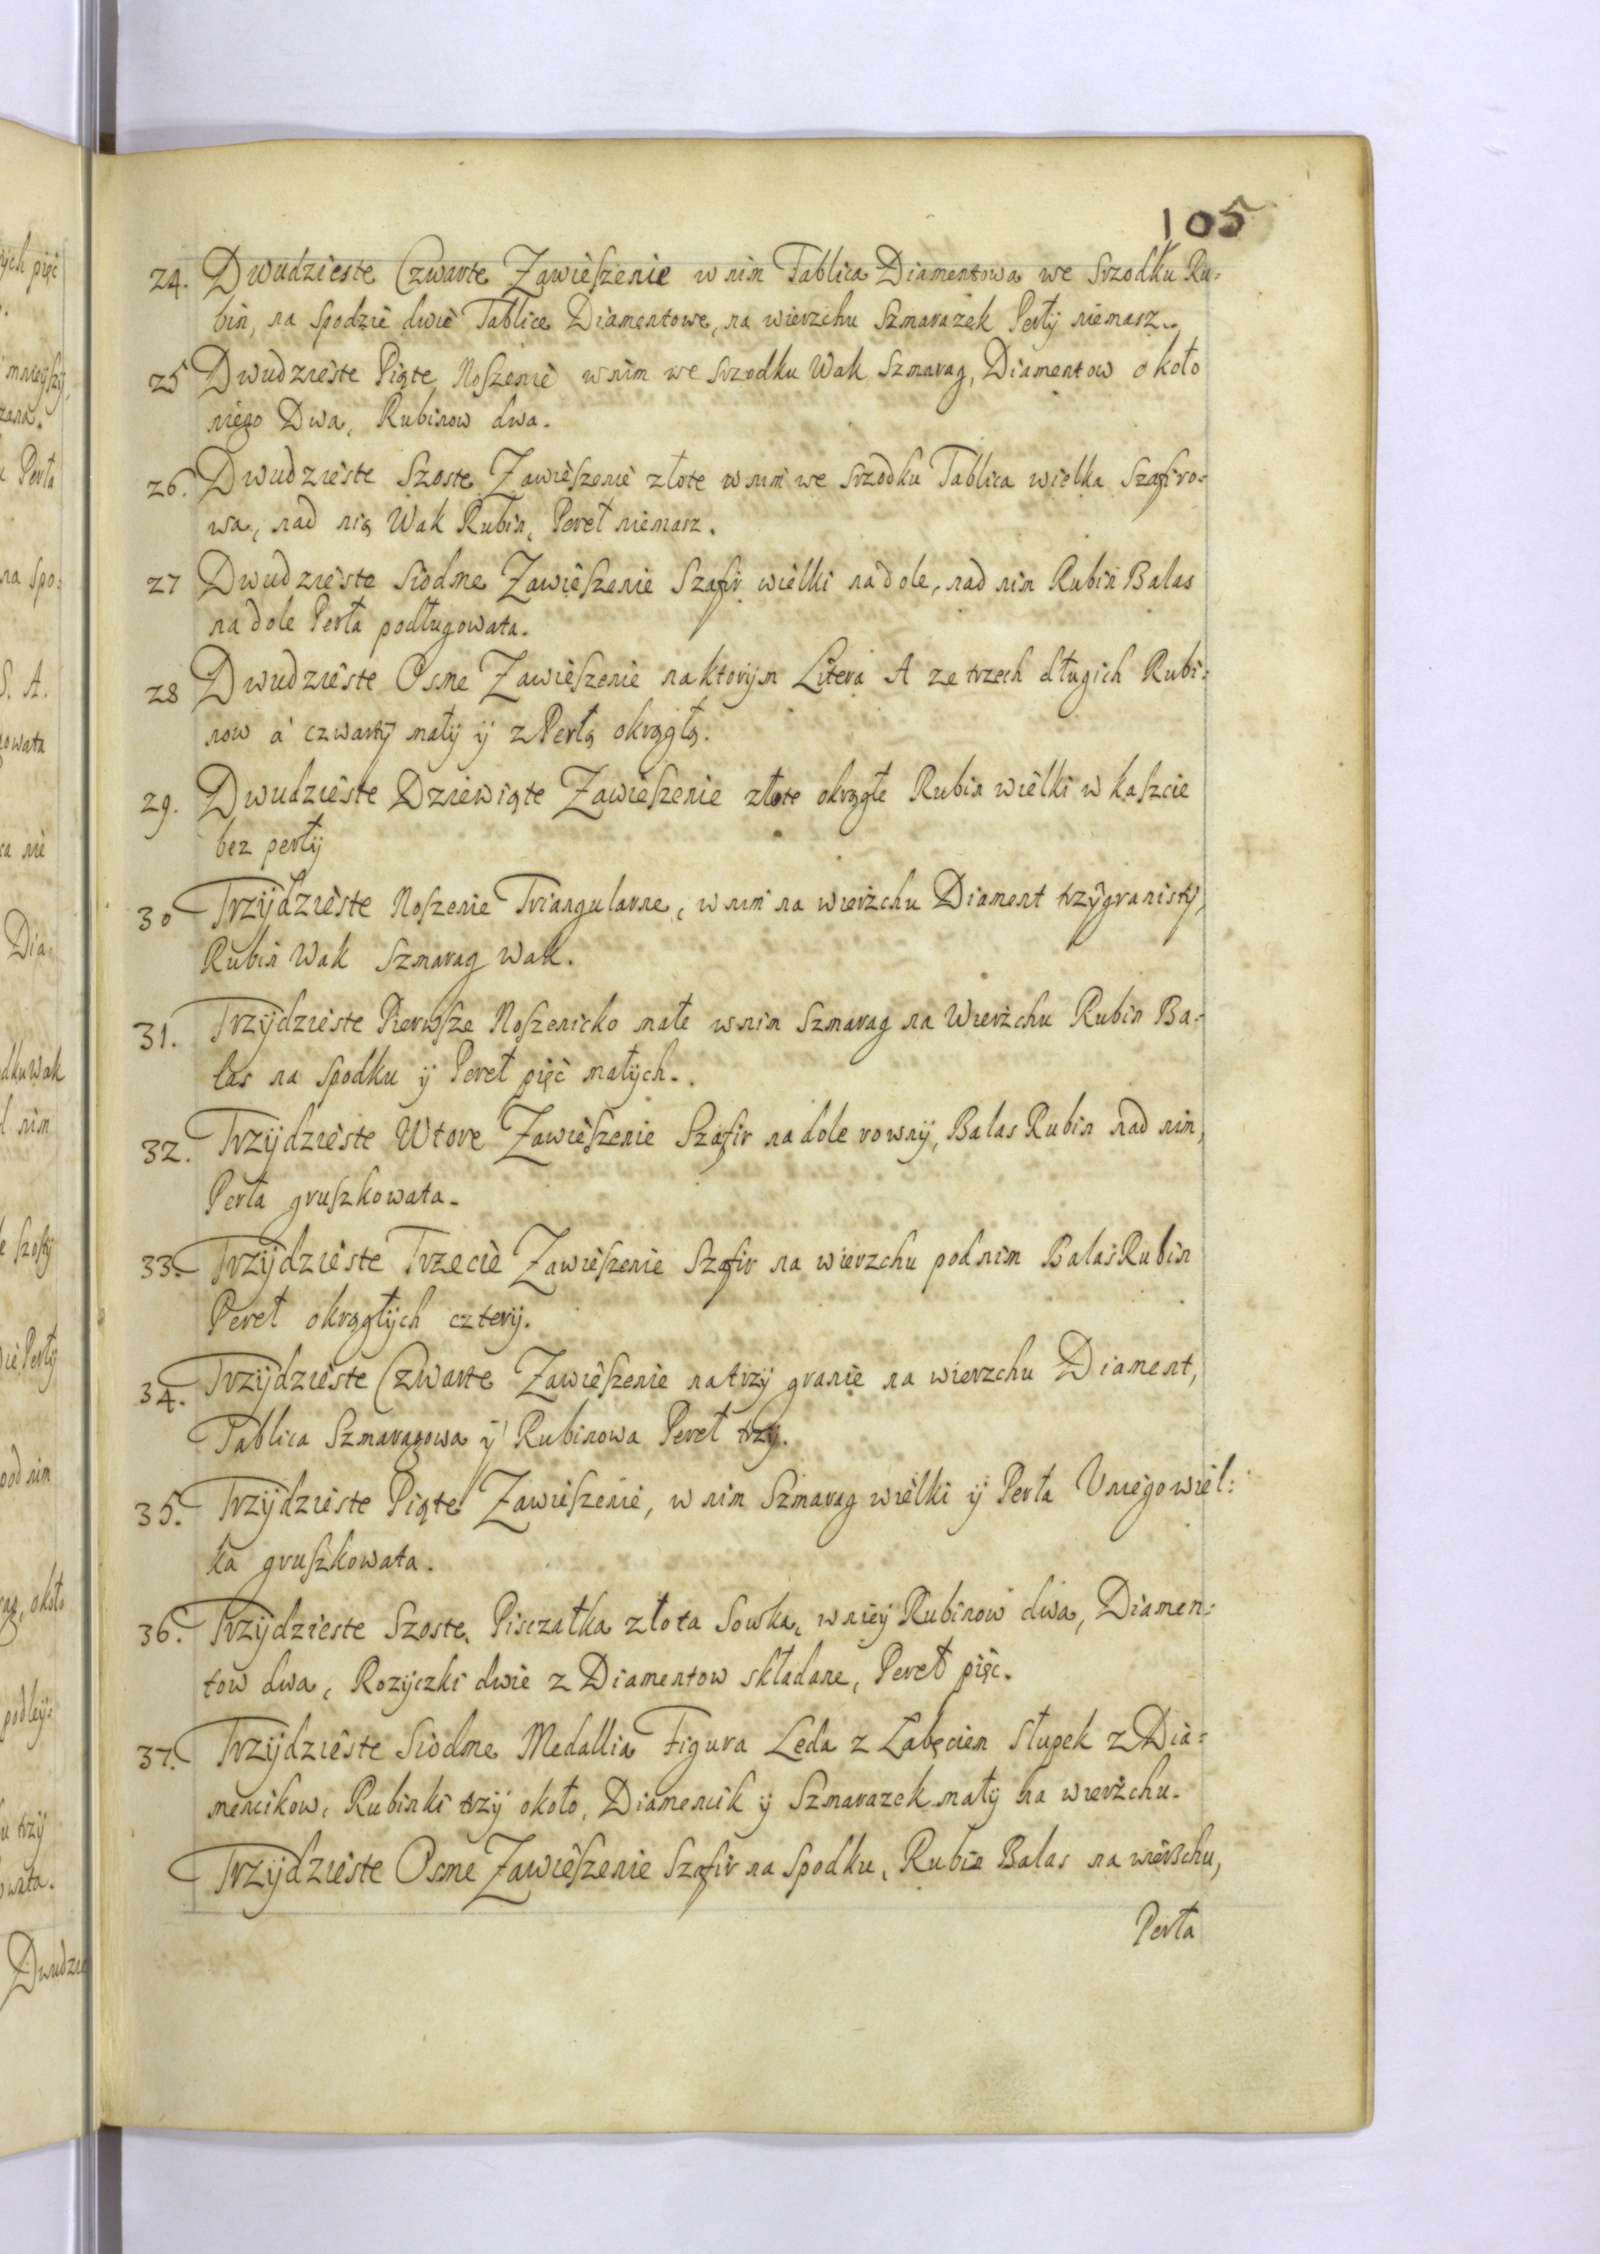 105
24. Dwudzieste Czwarte Zawieszenie w nim Tablica Diamentowa we srzodku Ru-
bin, na spodzie dwie Tablice Diamentowe, na wierzchu Szmarazek Perły niemasz.
25 Dwudzieste Piąte Noszenie w nim we srzodku Wak Szmarag, Diamentow około
niego Dwa, Rubinow dwa.
26. Dwudzieste Szoste Zawieszenie złote w nim we srzodku Tablica wielka Szafiro-
wa, nad nią Wak Rubin, Pereł niemasz.
27 Dwudzieste Siodme Zawieszenie Szafir wielki na dole, nad nim Rubin Balas
na dole Perła podługowata.
28 Dwudzieste Osme Zawieszenie na ktorym Litera A ze trzech długich Rubi-
now á czwarty mały y z Perłą okrągłą.
29. Dwudzieste Dziewiąte Zawieszenie złote okrągłe Rubin wielki w kaszcie
bez perły
30 Trzydzieste Noszenie Triangularne, w nim na wierzchu Diament trzygranisty,
Rubin Wak Szmarag Wak.
31. Trzydzieste Pierwsze Noszenicko małe w nim Szmarag na Wierzchu Rubin Ba-
las na spodku y Pereł pięć małych.
32. Trzydzieste Wtore Zawieszenie Szafir na dole rowny, Balas Rubin nad nim,
Perła gruszkowata.
33. Trzydzieste Trzecie Zawieszenie Szafir na wierzchu pod nim Balas Rubin
Pereł okrągłych cztery.
34. Trzydzieste Czwarte Zawieszenie na trzy granie na wierzchu Diament,
Tablica Szmaragowa y Rubinowa Pereł trzy.
35. Trzydzieste Piąte Zawieszenie, w nim Szmarag wielki y Perła U niego wiel-
ka gruszkowata.
36. Trzydzieste Szoste Pisczałka złota Sowka, w niey Rubinow dwa, Diamen-
tow dwa, Rozyczki dwie z Diamentow składane, Pereł pięć.
37. Trzydzieste Siodme Medallia Figura Leda z Łabęciem słupek z Dia-
mencikow, Rubinki trzy około, Diamencik y Szmarazek mały na wierzchu.
Trzydzieste Osme Zawieszenie Szafir na spodku, Rubin Balas na wierzchu,
Perła